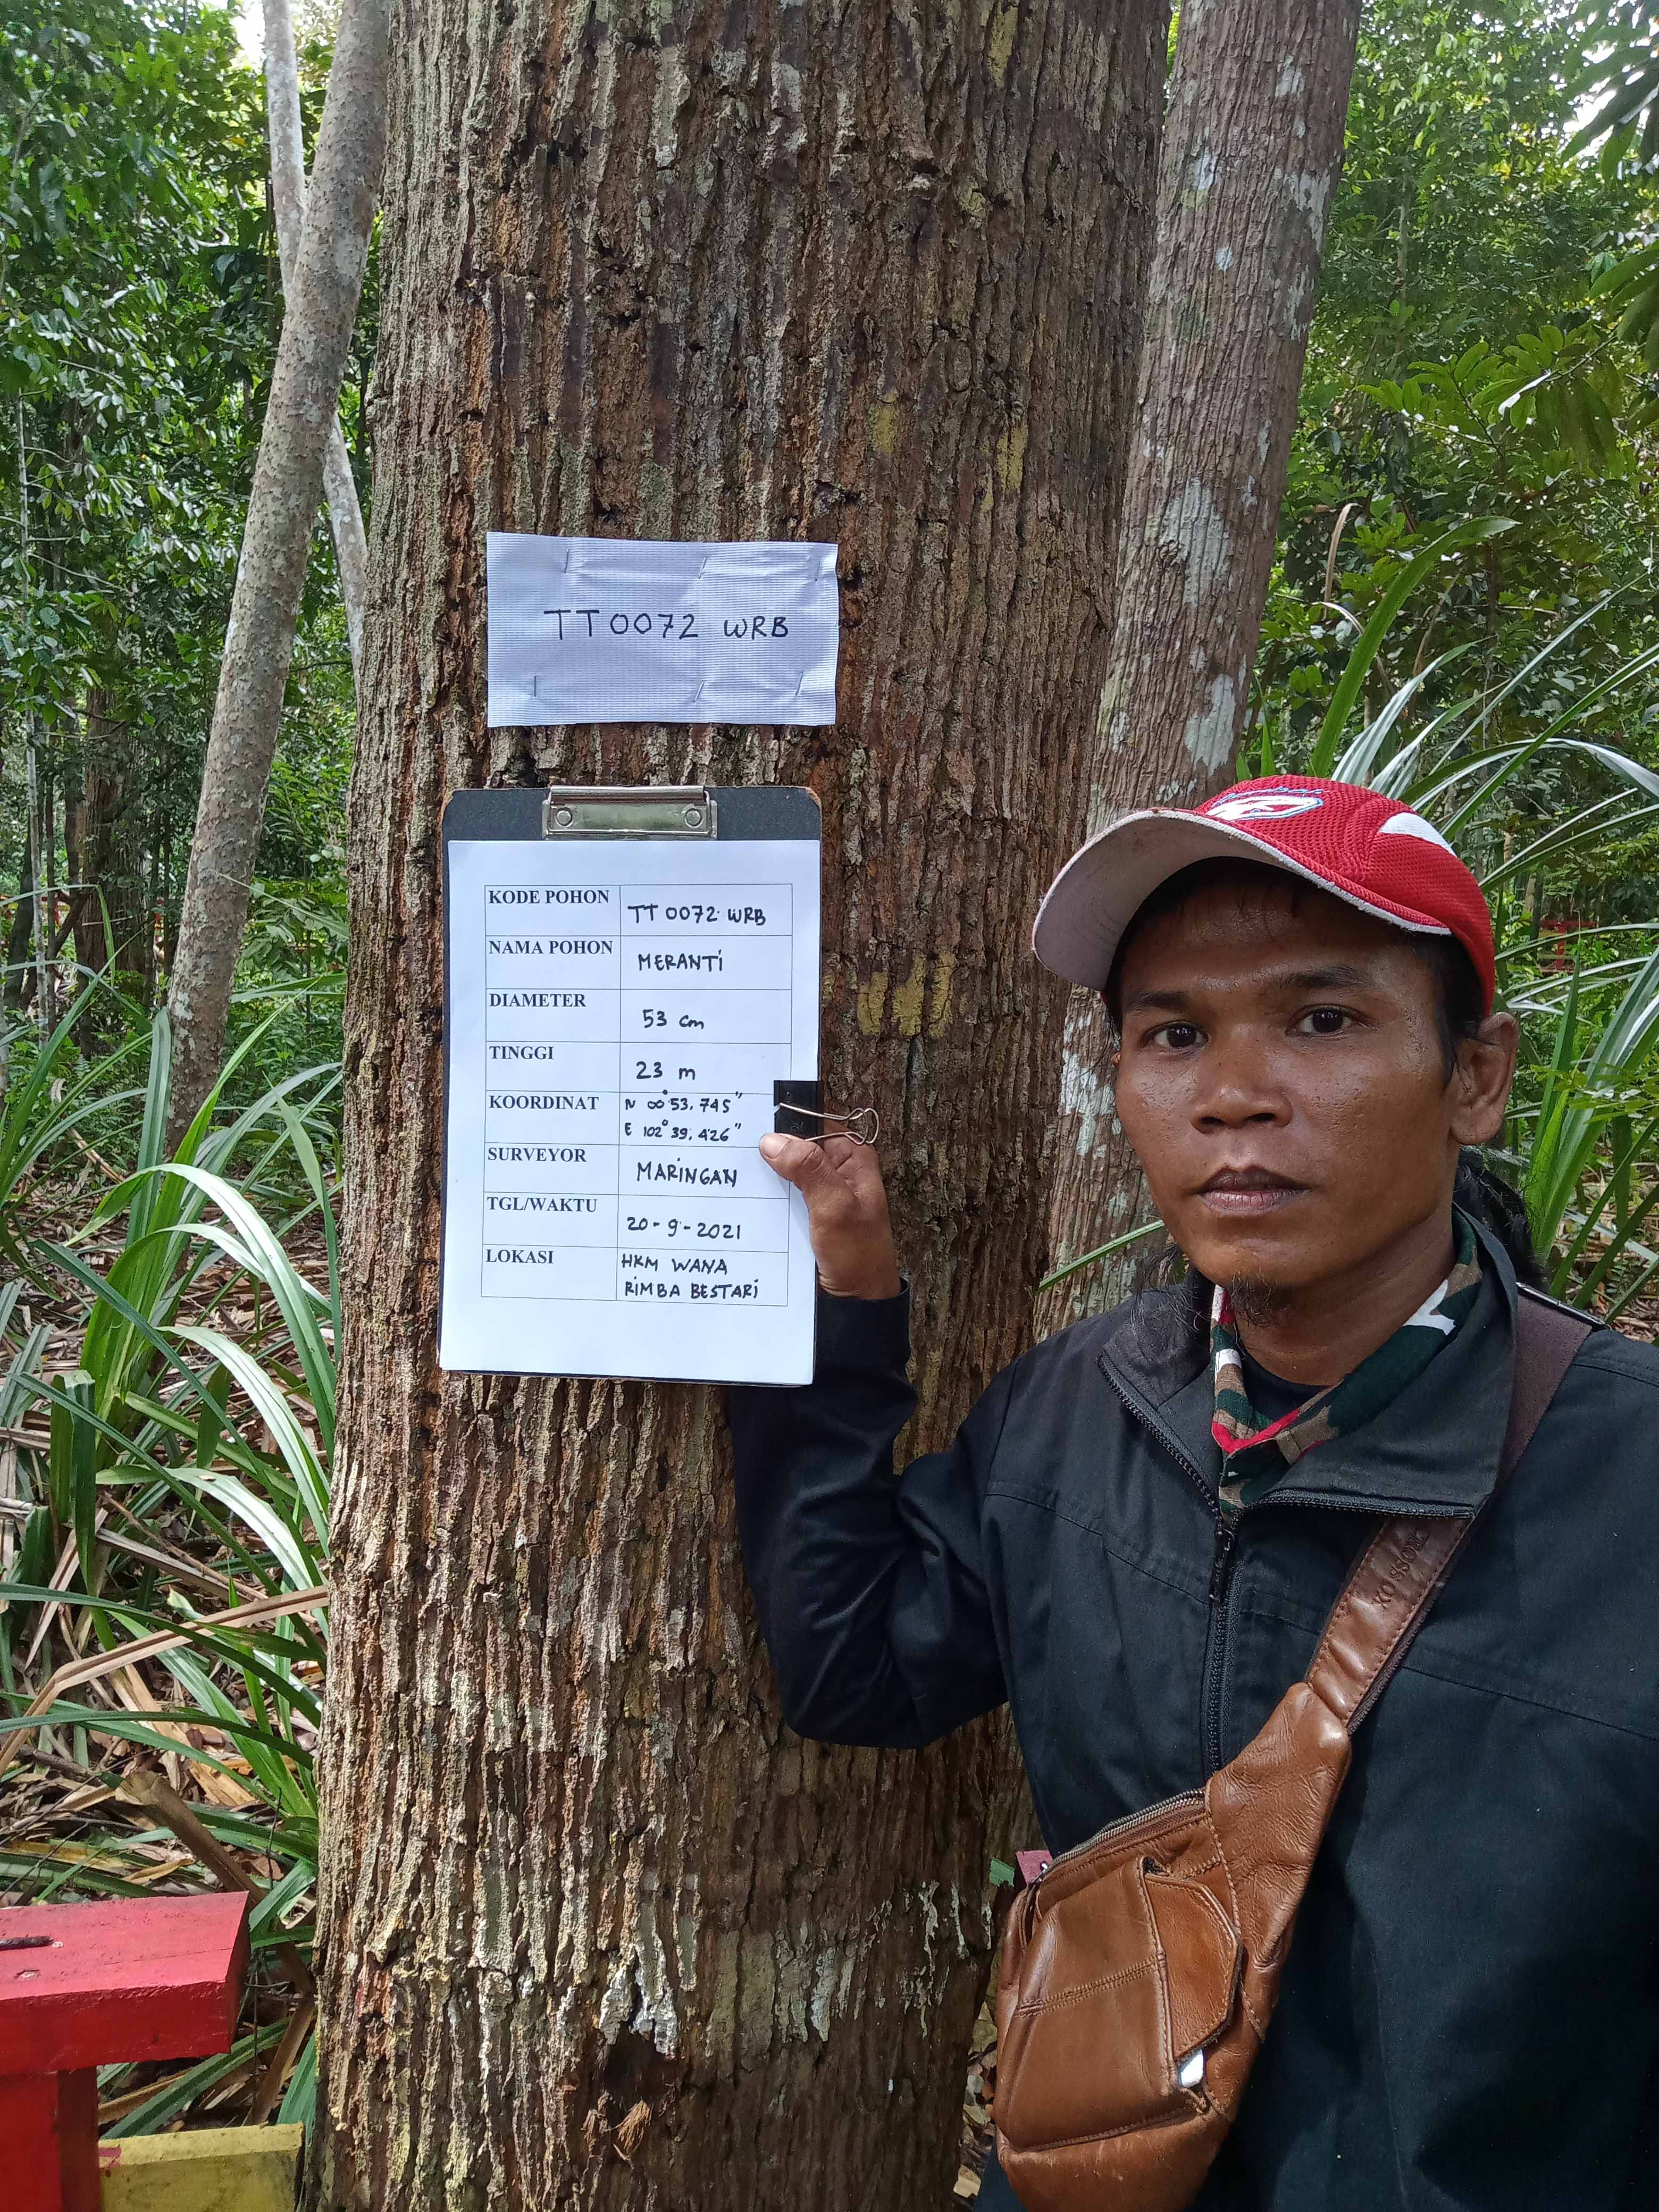 TT0072 WRB
KODE POHON TT 0072 WRB
NAMA POHON MERANTI
DIAMETER 53 cm
TINGGI 23 m
KOORDINAT N 00° 53, 745"
E 102° 39, 426"
SURVEYOR MARINGAN
TGL/WAKTU 20-9-2021
LOKASI HKM WANA
RIMBA BESTARI